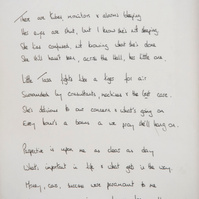 There are tubes, monitors & alarms beeping
Her eyes are shut, but I know she's not sleeping
She lies confused, not knowing what she's done
She still hasn't been, across the shell, her little one.
Little Tess fights like a tiger for air
Surrounded by consultants, machines & the best care.
She's oblivious to our concern & what's going on
Every hour's a bonus & we pray she'll hang on.
Perspective is upon me as clear as day
What's important in life & what gets in the way.
Money, cars, success were paramount to me